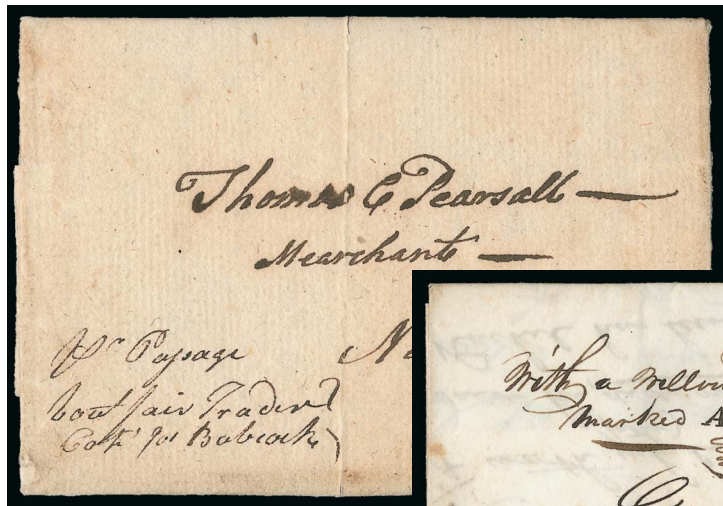 Thomas C Pearsall
Mearchant
Pr Passage
boat fair Trader
Capt. Babcock
With a
marked A